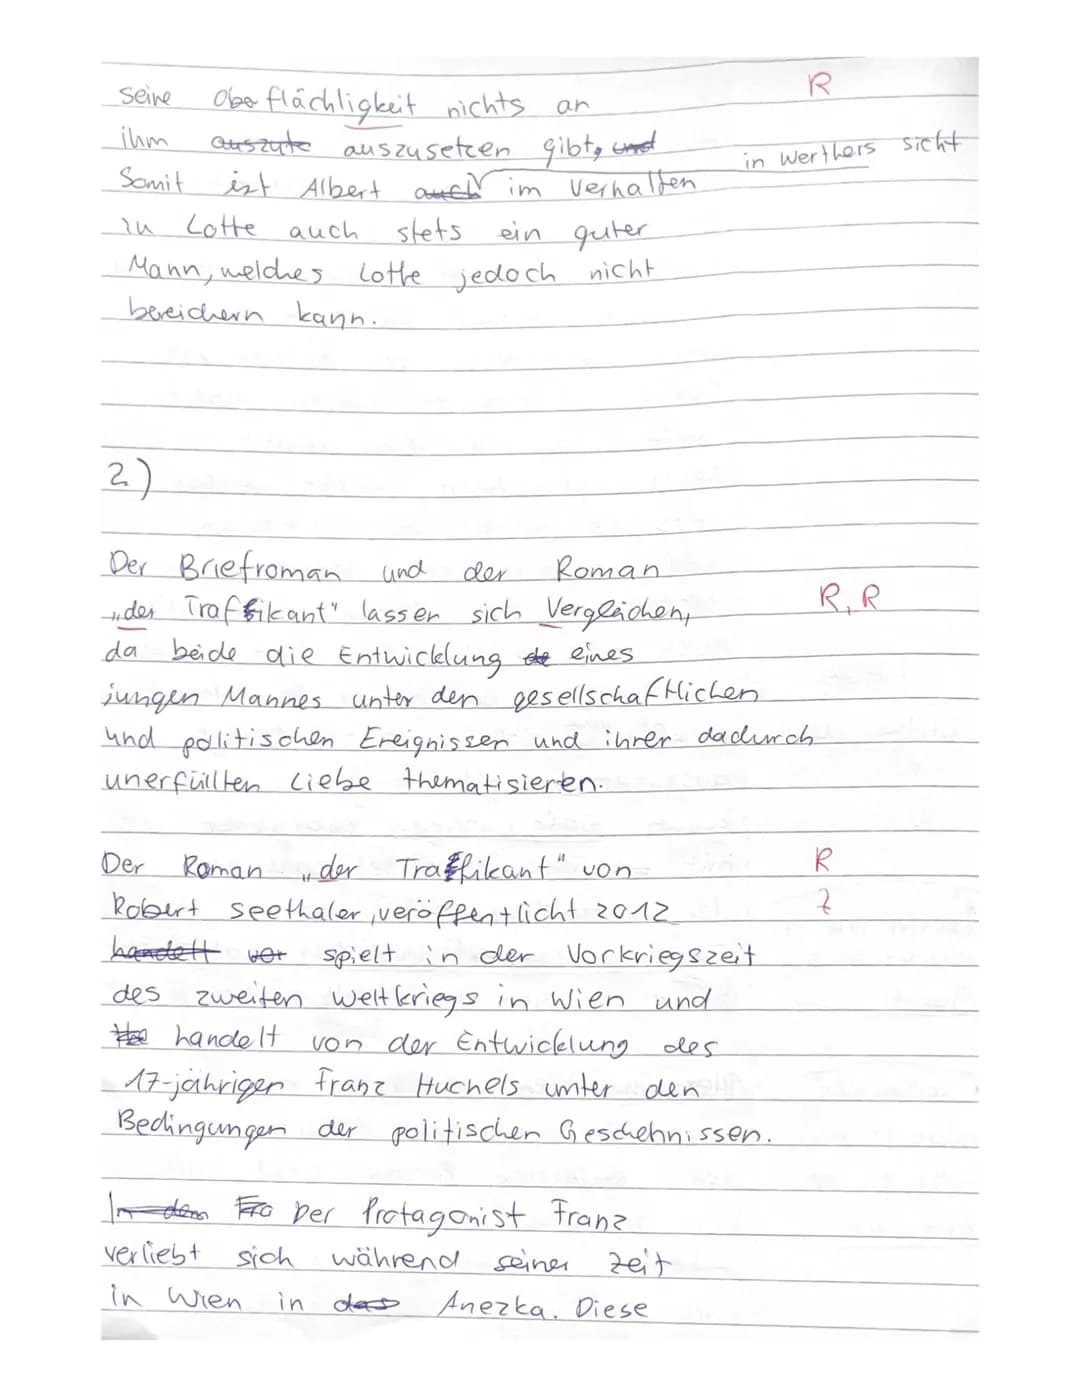 seine Oberflächligkeit nichts an R
ihm auszute auszusetzen gibt, und
in Werthers sicht
Somit ist Albert auch im Verhalten
zu Lotte auch stets ein guter
Mann, welches Lotte jedoch nicht
bereichern kann.
2.)
Der Briefroman und der Roman
„der Traffikant" lassen sich Vergleichen, R, R
da beide die Entwicklung de eines
jungen Mannes unter den gesellschaftlichen
und politischen Ereignissen und ihrer dadurch
unerfüllten Liebe thematisieren.
Der Roman „der Traffikant" von R
Robert Seethaler, veröffentlicht 2012 Z
handelt vor spielt in der Vorkriegszeit
des zweiten Weltkriegs in Wien und
handelt von der Entwicklung des
17-jährigen Franz Huchels unter den
Bedingungen der politischen Geschehnissen.
In dem Fra Der Protagonist Franz
verliebt sich während seiner Zeit
in Wien in das Anezka. Diese